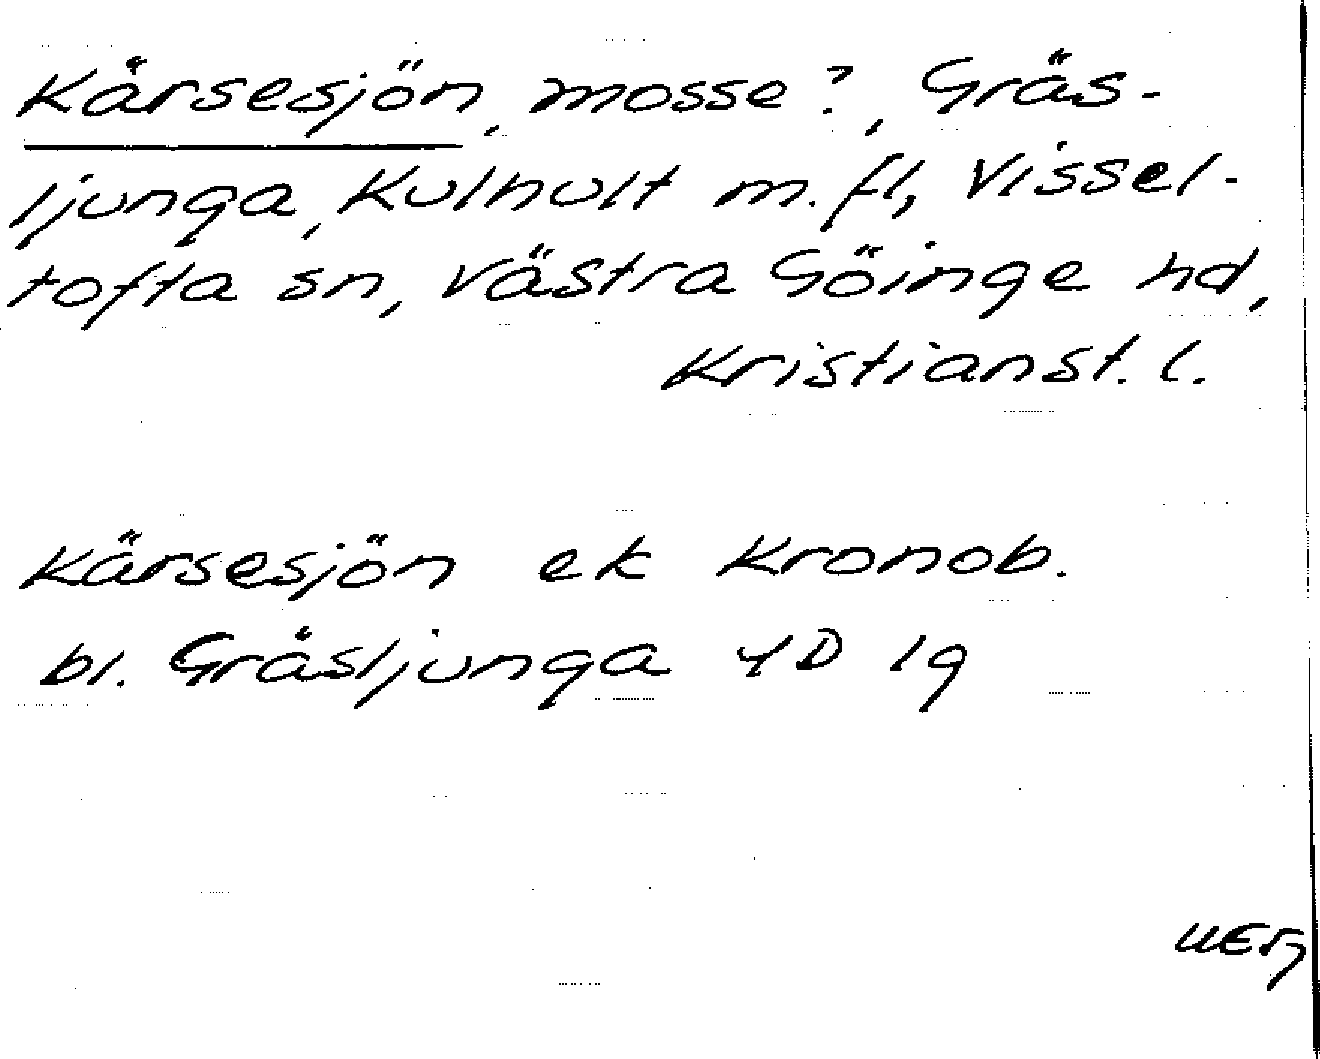 Kårsesjön, mosse?, Gräs-
ljunga, Kulhult m.fl, Vissel-
tofta sn, Västra Göinge hd,
Kristianst. l.
Kärsesjön ek Kronob.
bl. Gråsljunga 4D 1g